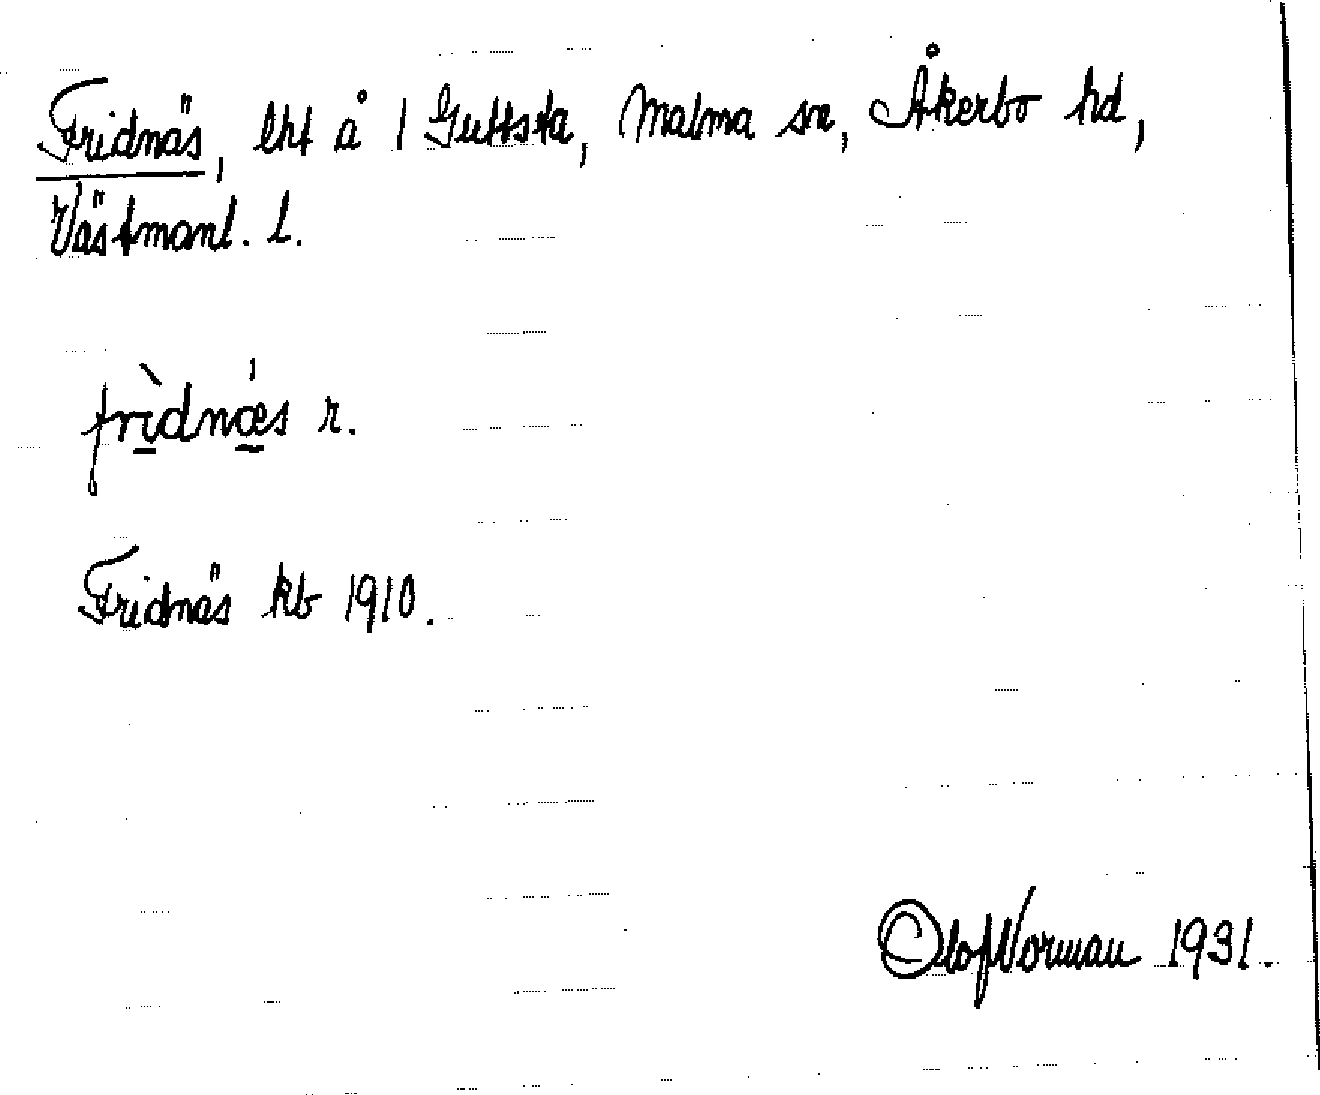 Fridnäs, lht å 1 Guttsta, Malma sn, Åkerbo hd,
Västmanl. l.
frì̲dnǽ̲s r.
Fridnäs kb 1910.
Olof Norman 1931.